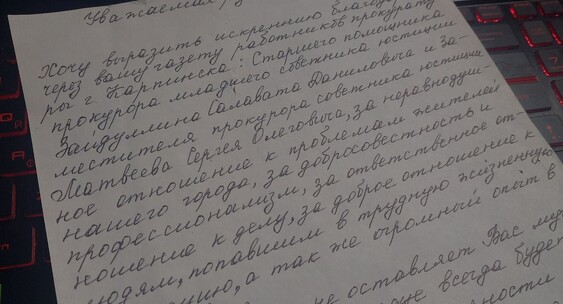 Уважаемая
Хочу выразить искреннюю
через вашу газету работников прокурату
ры г Карпинска: Старшего помощника
прокурора младшего советника юстиции
Зайдуллина Салавата Даниловича и За-
местителя прокурора советника юстиции
Матвеева Сергея Олеговича, за неравнодуш-
ное отношение к проблемам жителей
нашего города, за добросовестность и
профессионализм, за ответственное от-
ношение к делу, за доброе отношение к
людям, попавшим в трудную жизненную
а так же огромный опыт в
не оставляет Вас
всегда будет